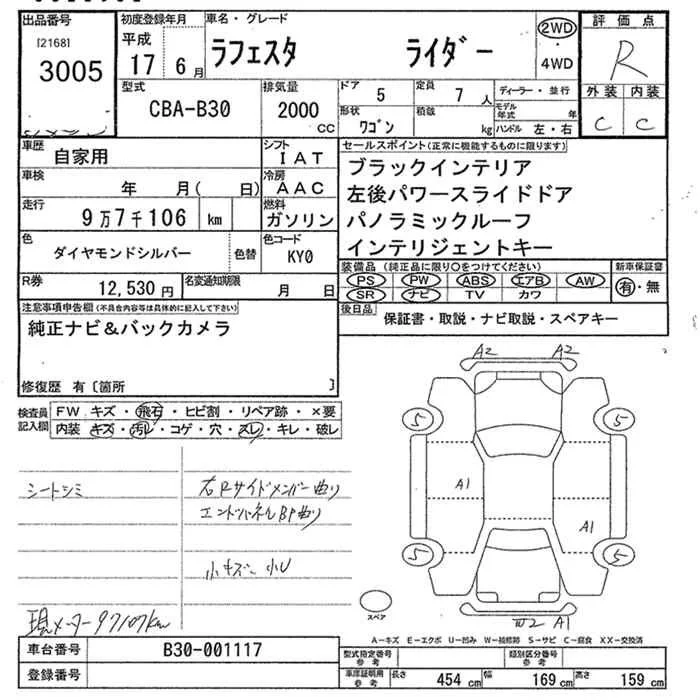 出品番号 [2168] 3005
初度登録年月 平成 17 6月
車名・グレード ラフェスタ ライダー
2WD・4WD
評価点 R
外装 C 内装 C
型式 CBA-B30
排気量 2000 CC
ドア 5
定員 7人
形状 ワゴン
積載 kg
ディーラー・並行
モデル年式 年
ハンドル 左・右
車歴 自家用
シフト IAT
車検 年 月( 日)
冷房 AAC
走行 9万7千106 km
燃料 ガソリン
色 ダイヤモンドシルバー 色替
色コード KY0
R券 12,530円
名変通知期限 月 日
セールスポイント(正常に機能するものに限ります)
ブラックインテリア
左後パワースライドドア
パノラミックルーフ
インテリジェントキー
装備品(純正品に限り○をつけてください)
PS PW ABS エアB AW
SR ナビ TV カワ
新車保証書 有・無
後日品 保証書・取説・ナビ取説・スペアキー
注意事項申告欄(不具合内容等は具体的に記入して下さい)
純正ナビ&バックカメラ
修復歴 有〔箇所 〕
検査員記入欄
FW キズ・飛石・ヒビ割・リペア跡・×要
内装 キズ・汚レ・コゲ・穴・スレ・キレ・破レ
シートシミ
右Rサイドメンバー曲り
エンドパネルBP曲り
小キズ 小U
現メーター97107km
A2 A2
5 5
A1
A1
5 5
スペア
W2 A1
A-キズ E-エクボ U-凹み W-補修跡 S-サビ C-腐食 XX-交換済
車台番号 B30-001117
登録番号
型式指定番号 参考
類別区分番号 参考
車庫証明用 参考 長さ 454 cm 幅 169 cm 高さ 159 cm